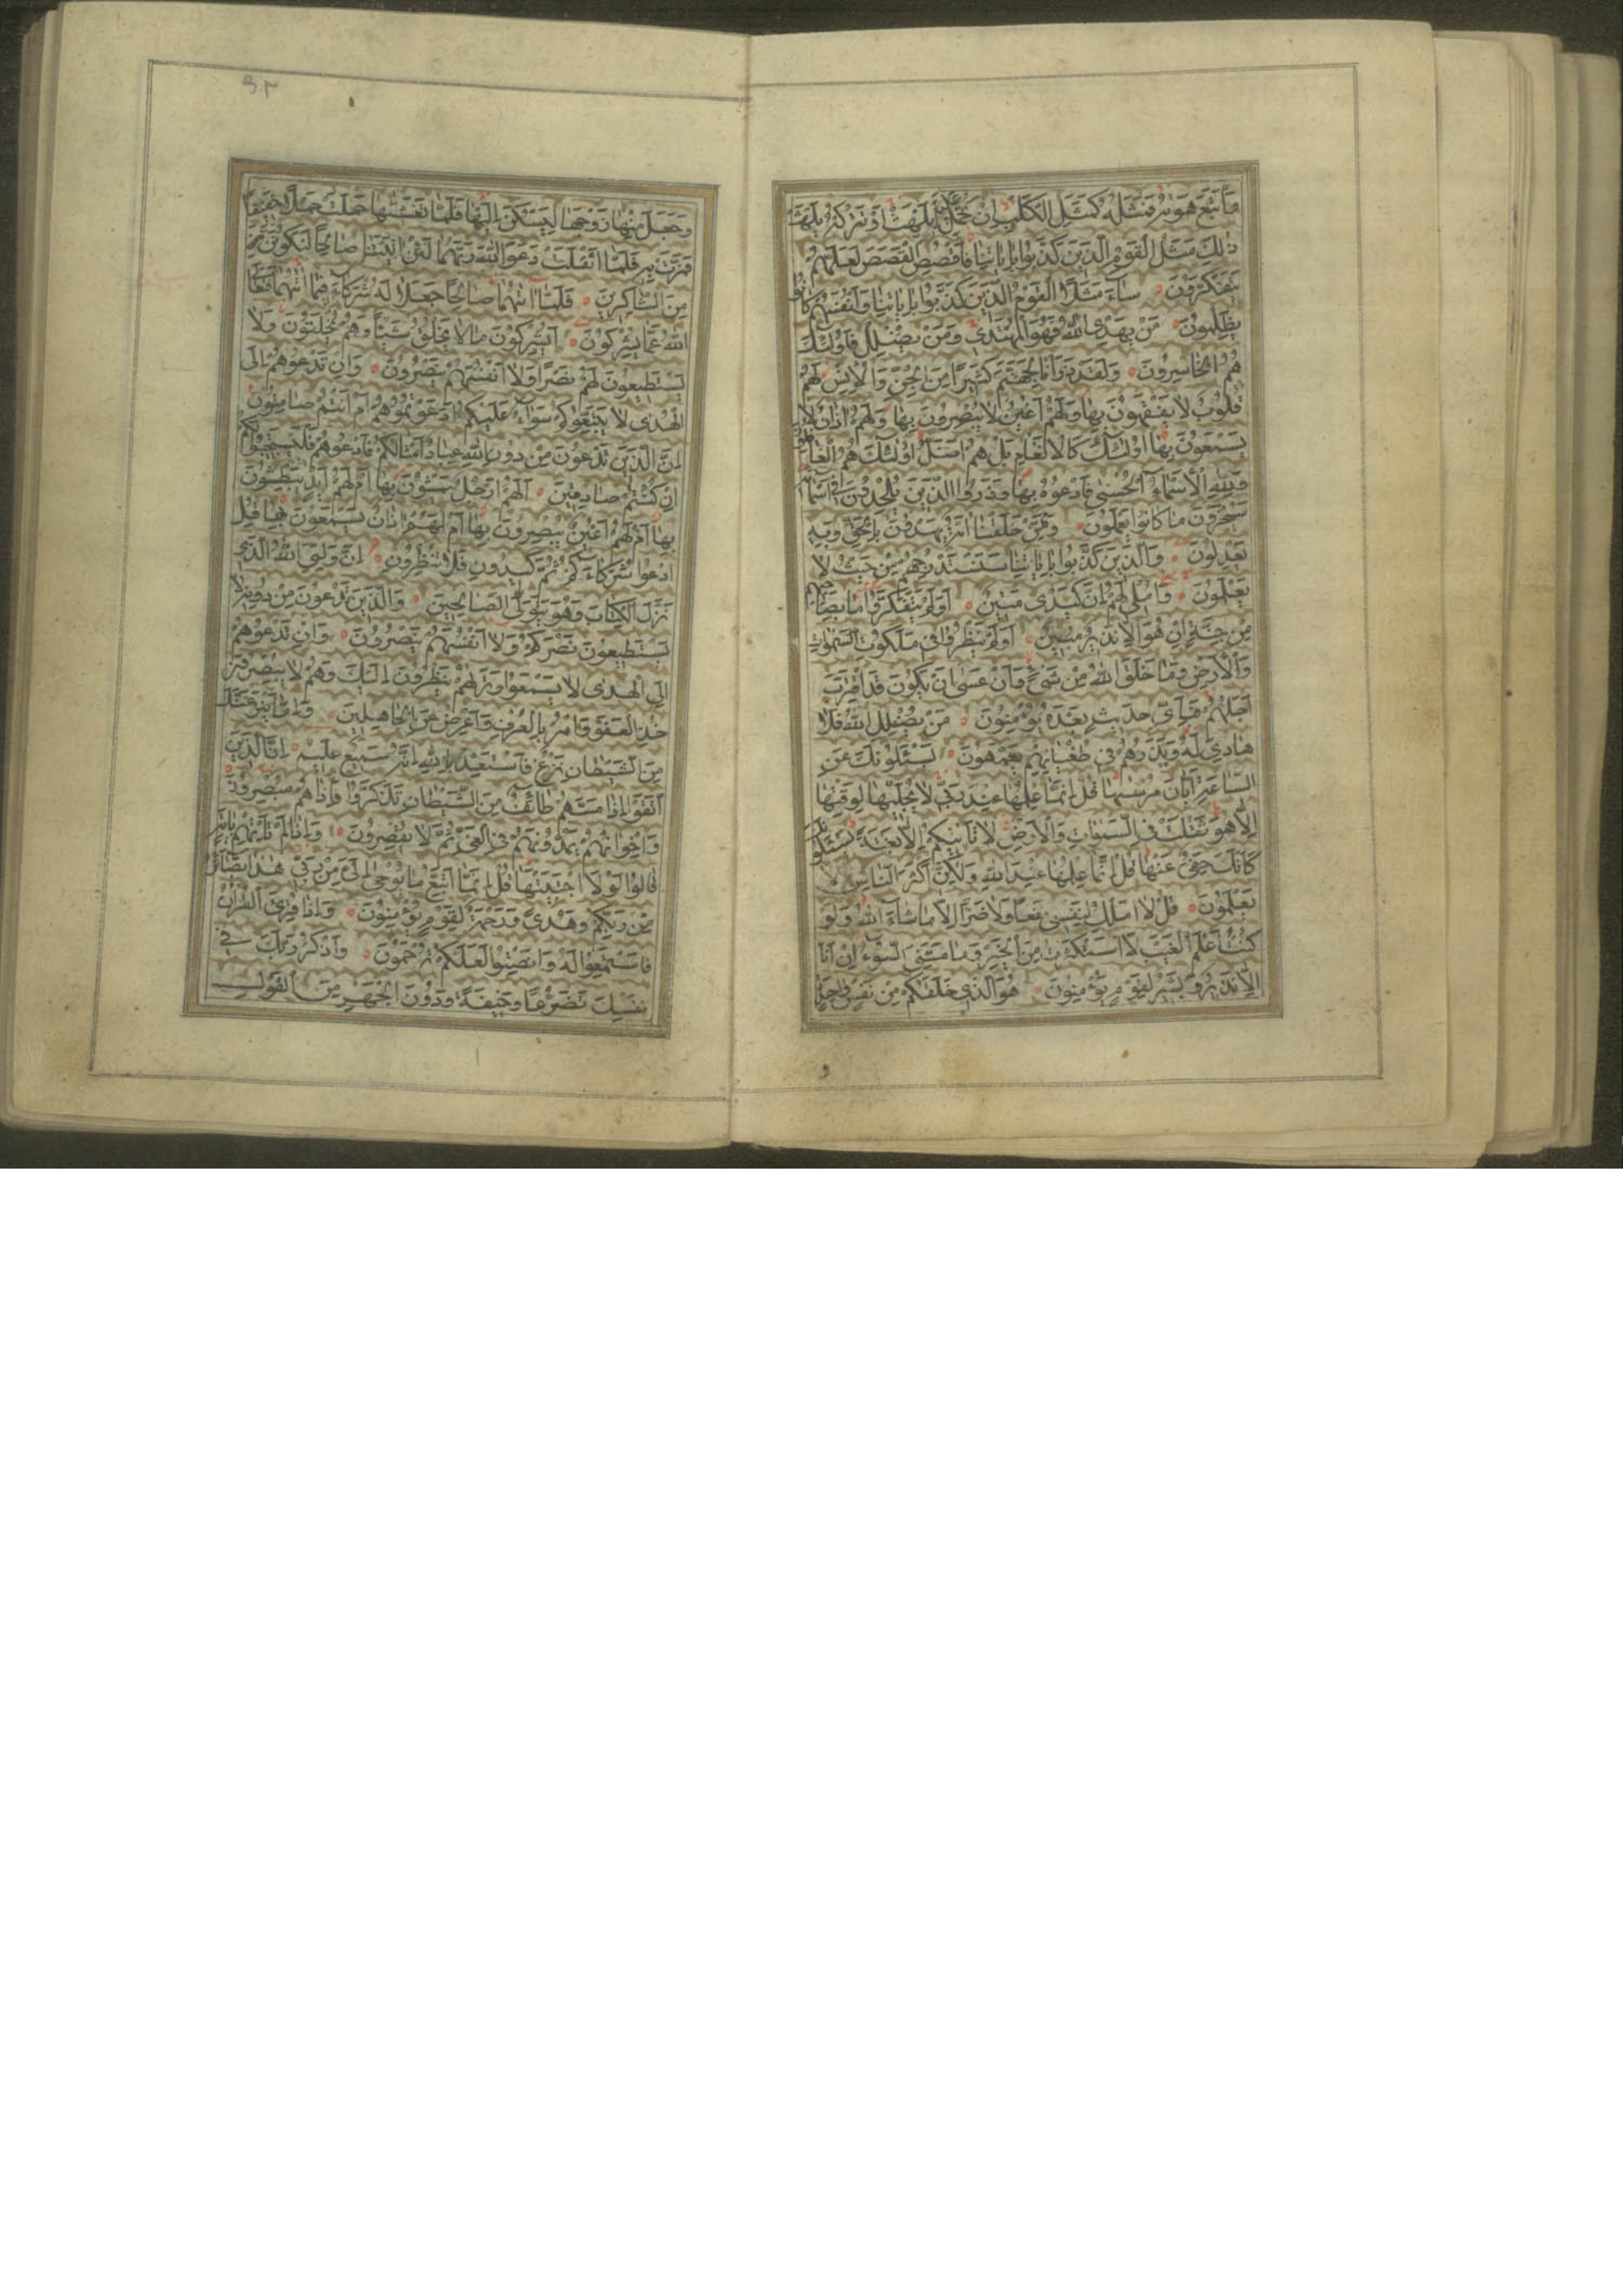 وَاتَّبَعَ هَوٰیهُ فَمَثَلُهُ كَمَثَلِ الْكَلْبِ اِنْ تَحْمِلْ عَلَيْهِ يَلْهَثْ اَوْ تَتْرُكْهُ يَلْهَثْ
ذٰلِكَ مَثَلُ الْقَوْمِ الَّذِينَ كَذَّبُوا بِاٰيَاتِنَا فَاقْصُصِ الْقَصَصَ لَعَلَّهُمْ
يَتَفَكَّرُونَ سَاءَ مَثَلًا الْقَوْمُ الَّذِينَ كَذَّبُوا بِاٰيَاتِنَا وَاَنْفُسَهُمْ كَانُوا
يَظْلِمُونَ مَنْ يَهْدِ اللّٰهُ فَهُوَ الْمُهْتَدِي وَمَنْ يُضْلِلْ فَاُولٰئِكَ
هُمُ الْخَاسِرُونَ وَلَقَدْ ذَرَأْنَا لِجَهَنَّمَ كَثِيرًا مِنَ الْجِنِّ وَالْاِنْسِ لَهُمْ
قُلُوبٌ لَا يَفْقَهُونَ بِهَا وَلَهُمْ اَعْيُنٌ لَا يُبْصِرُونَ بِهَا وَلَهُمْ اٰذَانٌ لَا
يَسْمَعُونَ بِهَا اُولٰئِكَ كَالْاَنْعَامِ بَلْ هُمْ اَضَلُّ اُولٰئِكَ هُمُ الْغَافِلُونَ
وَلِلّٰهِ الْاَسْمَاءُ الْحُسْنٰى فَادْعُوهُ بِهَا وَذَرُوا الَّذِينَ يُلْحِدُونَ فِي اَسْمَائِهِ
سَيُجْزَوْنَ مَا كَانُوا يَعْمَلُونَ وَمِمَّنْ خَلَقْنَا اُمَّةٌ يَهْدُونَ بِالْحَقِّ وَبِهِ
يَعْدِلُونَ وَالَّذِينَ كَذَّبُوا بِاٰيَاتِنَا سَنَسْتَدْرِجُهُمْ مِنْ حَيْثُ لَا
يَعْلَمُونَ وَاُمْلِي لَهُمْ اِنَّ كَيْدِي مَتِينٌ اَوَلَمْ يَتَفَكَّرُوا مَا بِصَاحِبِهِمْ
مِنْ جِنَّةٍ اِنْ هُوَ اِلَّا نَذِيرٌ مُبِينٌ اَوَلَمْ يَنْظُرُوا فِي مَلَكُوتِ السَّمٰوَاتِ
وَالْاَرْضِ وَمَا خَلَقَ اللّٰهُ مِنْ شَيْءٍ وَاَنْ عَسٰى اَنْ يَكُونَ قَدِ اقْتَرَبَ
اَجَلُهُمْ فَبِاَيِّ حَدِيثٍ بَعْدَهُ يُؤْمِنُونَ مَنْ يُضْلِلِ اللّٰهُ فَلَا
هَادِيَ لَهُ وَيَذَرُهُمْ فِي طُغْيَانِهِمْ يَعْمَهُونَ يَسْئَلُونَكَ عَنِ
السَّاعَةِ اَيَّانَ مُرْسٰيهَا قُلْ اِنَّمَا عِلْمُهَا عِنْدَ رَبِّي لَا يُجَلِّيهَا لِوَقْتِهَا
اِلَّا هُوَ ثَقُلَتْ فِي السَّمٰوَاتِ وَالْاَرْضِ لَا تَأْتِيكُمْ اِلَّا بَغْتَةً يَسْئَلُونَكَ
كَاَنَّكَ حَفِيٌّ عَنْهَا قُلْ اِنَّمَا عِلْمُهَا عِنْدَ اللّٰهِ وَلٰكِنَّ اَكْثَرَ النَّاسِ لَا
يَعْلَمُونَ قُلْ لَا اَمْلِكُ لِنَفْسِي نَفْعًا وَلَا ضَرًّا اِلَّا مَا شَاءَ اللّٰهُ وَلَوْ
كُنْتُ اَعْلَمُ الْغَيْبَ لَاسْتَكْثَرْتُ مِنَ الْخَيْرِ وَمَا مَسَّنِيَ السُّوءُ اِنْ اَنَا
اِلَّا نَذِيرٌ وَبَشِيرٌ لِقَوْمٍ يُؤْمِنُونَ هُوَ الَّذِي خَلَقَكُمْ مِنْ نَفْسٍ وَاحِدَةٍ
و
وَجَعَلَ مِنْهَا زَوْجَهَا لِيَسْكُنَ اِلَيْهَا فَلَمَّا تَغَشّٰيهَا حَمَلَتْ حَمْلًا خَفِيفًا
فَمَرَّتْ بِهِ فَلَمَّا اَثْقَلَتْ دَعَوَا اللّٰهَ رَبَّهُمَا لَئِنْ اٰتَيْتَنَا صَالِحًا لَنَكُونَنَّ
مِنَ الشَّاكِرِينَ فَلَمَّا اٰتٰيهُمَا صَالِحًا جَعَلَا لَهُ شُرَكَاءَ فِيمَا اٰتٰيهُمَا فَتَعَالَى
اللّٰهُ عَمَّا يُشْرِكُونَ اَيُشْرِكُونَ مَا لَا يَخْلُقُ شَيْئًا وَهُمْ يُخْلَقُونَ وَلَا
يَسْتَطِيعُونَ لَهُمْ نَصْرًا وَلَا اَنْفُسَهُمْ يَنْصُرُونَ وَاِنْ تَدْعُوهُمْ اِلَى
الْهُدٰى لَا يَتَّبِعُوكُمْ سَوَاءٌ عَلَيْكُمْ اَدَعَوْتُمُوهُمْ اَمْ اَنْتُمْ صَامِتُونَ
اِنَّ الَّذِينَ تَدْعُونَ مِنْ دُونِ اللّٰهِ عِبَادٌ اَمْثَالُكُمْ فَادْعُوهُمْ فَلْيَسْتَجِيبُوا لَكُمْ
اِنْ كُنْتُمْ صَادِقِينَ اَلَهُمْ اَرْجُلٌ يَمْشُونَ بِهَا اَمْ لَهُمْ اَيْدٍ يَبْطِشُونَ
بِهَا اَمْ لَهُمْ اَعْيُنٌ يُبْصِرُونَ بِهَا اَمْ لَهُمْ اٰذَانٌ يَسْمَعُونَ بِهَا قُلِ
ادْعُوا شُرَكَاءَكُمْ ثُمَّ كِيدُونِ فَلَا تُنْظِرُونِ اِنَّ وَلِيِّيَ اللّٰهُ الَّذِي
نَزَّلَ الْكِتَابَ وَهُوَ يَتَوَلَّى الصَّالِحِينَ وَالَّذِينَ تَدْعُونَ مِنْ دُونِهِ لَا
يَسْتَطِيعُونَ نَصْرَكُمْ وَلَا اَنْفُسَهُمْ يَنْصُرُونَ وَاِنْ تَدْعُوهُمْ
اِلَى الْهُدٰى لَا يَسْمَعُوا وَتَرٰيهُمْ يَنْظُرُونَ اِلَيْكَ وَهُمْ لَا يُبْصِرُونَ
خُذِ الْعَفْوَ وَأْمُرْ بِالْعُرْفِ وَاَعْرِضْ عَنِ الْجَاهِلِينَ وَاِمَّا يَنْزَغَنَّكَ
مِنَ الشَّيْطَانِ نَزْغٌ فَاسْتَعِذْ بِاللّٰهِ اِنَّهُ سَمِيعٌ عَلِيمٌ اِنَّ الَّذِينَ
اتَّقَوْا اِذَا مَسَّهُمْ طَائِفٌ مِنَ الشَّيْطَانِ تَذَكَّرُوا فَاِذَا هُمْ مُبْصِرُونَ
وَاِخْوَانُهُمْ يَمُدُّونَهُمْ فِي الْغَيِّ ثُمَّ لَا يُقْصِرُونَ وَاِذَا لَمْ تَأْتِهِمْ بِاٰيَةٍ
قَالُوا لَوْلَا اجْتَبَيْتَهَا قُلْ اِنَّمَا اَتَّبِعُ مَا يُوحٰى اِلَيَّ مِنْ رَبِّي هٰذَا بَصَائِرُ
مِنْ رَبِّكُمْ وَهُدًى وَرَحْمَةٌ لِقَوْمٍ يُؤْمِنُونَ وَاِذَا قُرِئَ الْقُرْاٰنُ
فَاسْتَمِعُوا لَهُ وَاَنْصِتُوا لَعَلَّكُمْ تُرْحَمُونَ وَاذْكُرْ رَبَّكَ فِي
نَفْسِكَ تَضَرُّعًا وَخِيفَةً وَدُونَ الْجَهْرِ مِنَ الْقَوْلِ